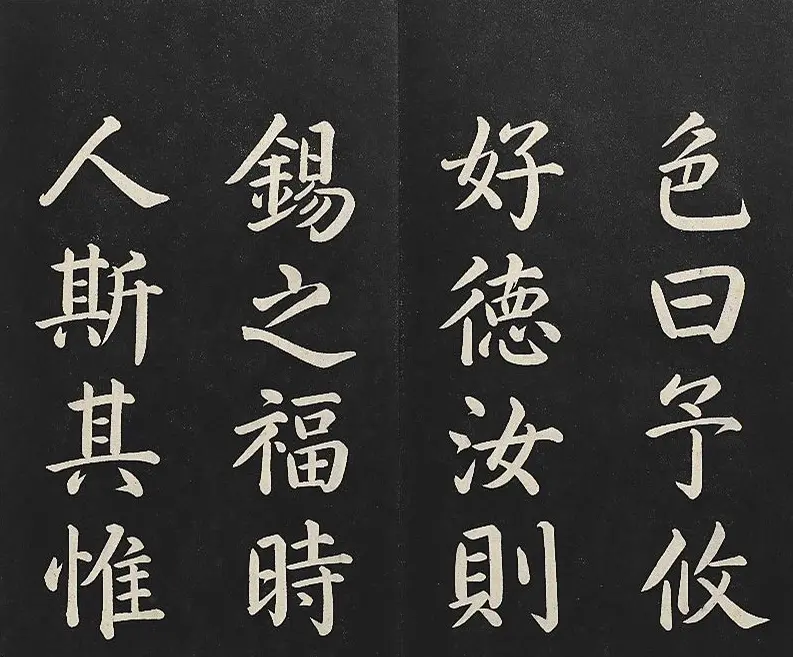 色曰予攸
好德汝則
錫之福時
人斯其惟